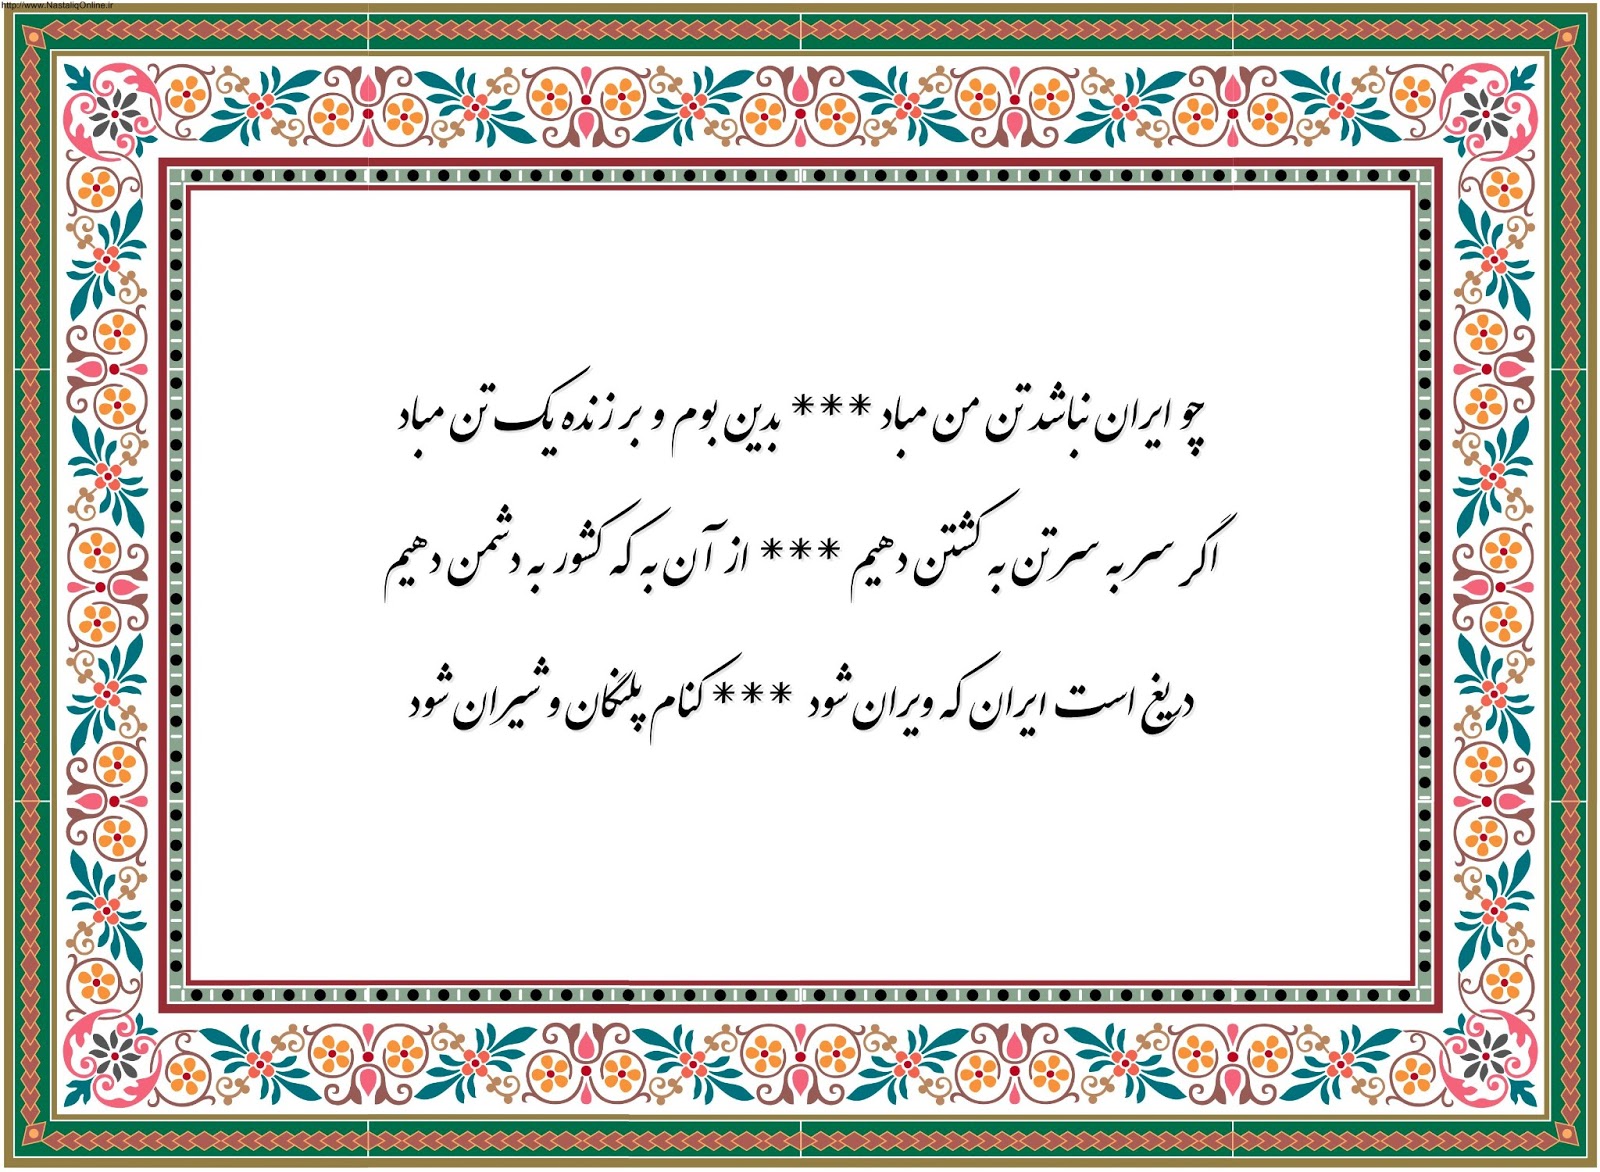 http://www.NastaliqOnline.ir
چو ایران نباشد تن من مباد *** بدین بوم و بر زنده یک تن مباد
اگر سر به سر تن به کشتن دهیم *** از آن به که کشور به دشمن دهیم
دریغ است ایران که ویران شود *** کنام پلنگان و شیران شود